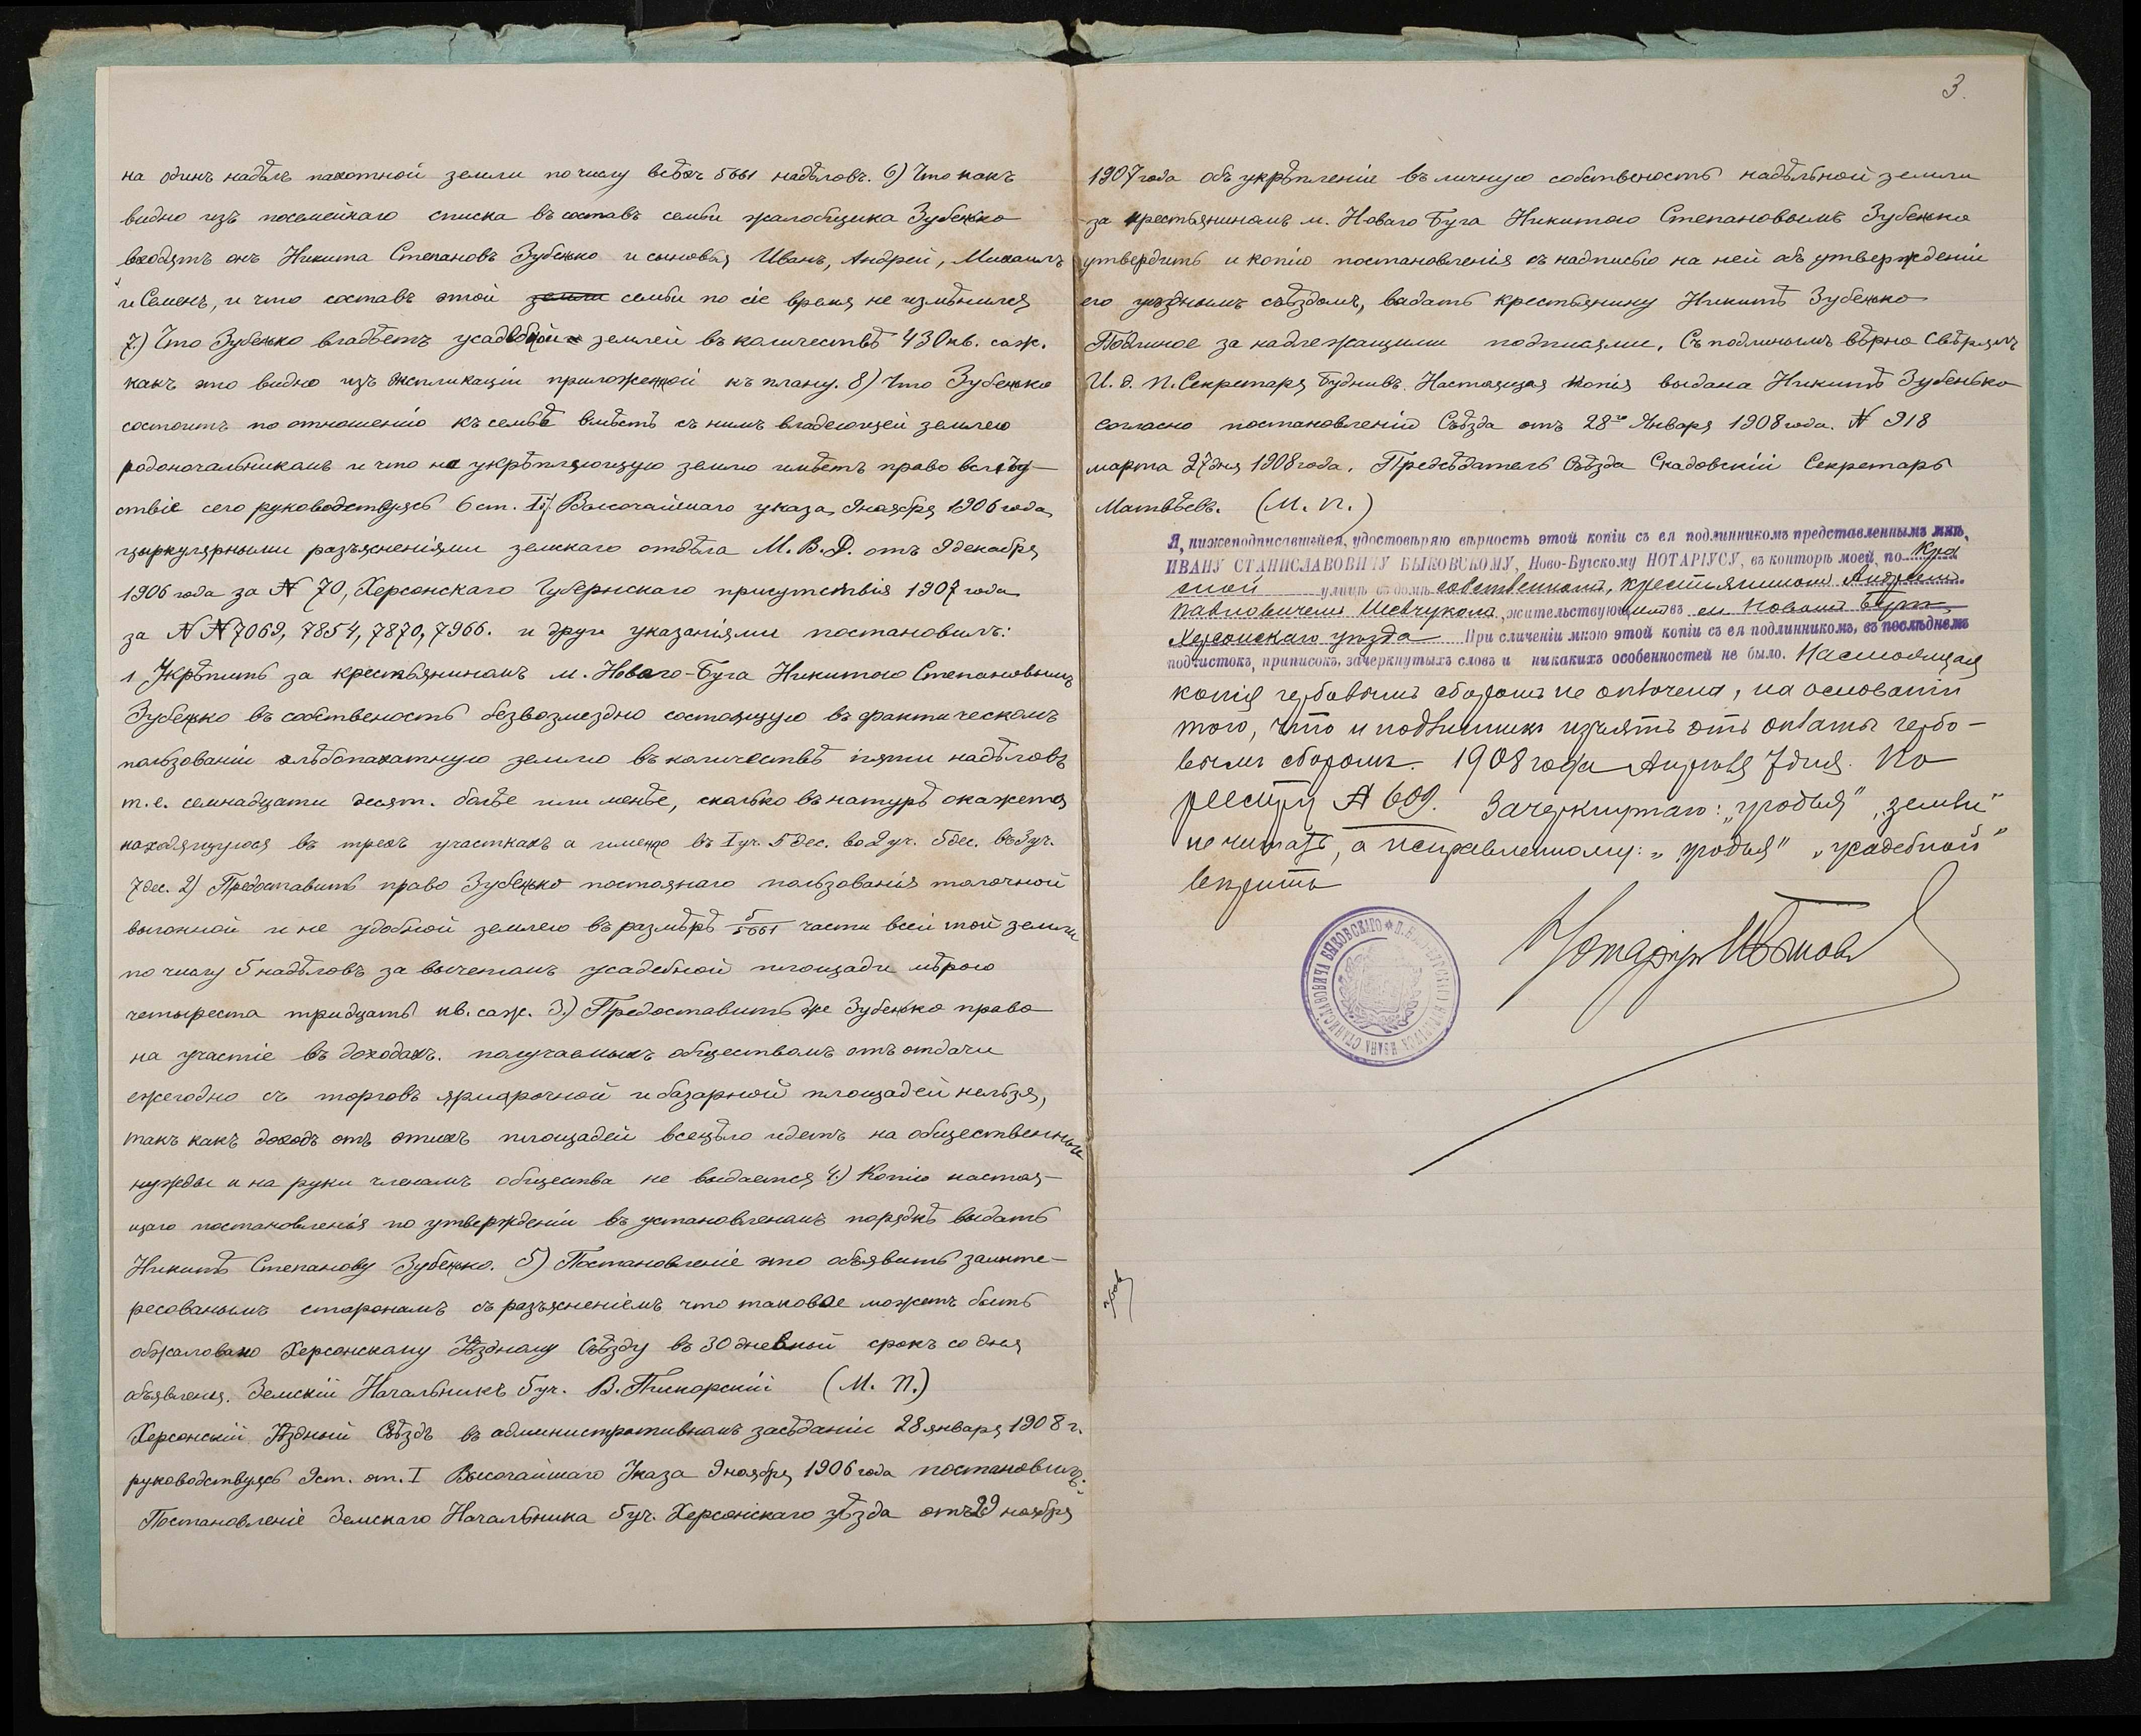 на одинъ надѣлъ пахотной земли по числу всѣхъ 5661 надѣловъ. 6) Что какъ
видно изъ посемейнаго списка въ составъ семьи жалобщика Зубенко
входятъ онъ Никита Степановъ Зубенко и сыновья Иванъ, Андрей, Михаилъ
и Семенъ, и что составъ этой земли семьи по сіе время не измѣнился
7.) Что Зубенко владѣетъ усадебной землей въ количествѣ 430 кв. саж.
какъ это видно изъ экспликаціи приложенной къ плану. 8) Что Зубенко
состоитъ по отношенію къ семьѣ вмѣстѣ съ нимъ владеющей землею
родоначальникомъ и что на укрѣпляющую землю имѣетъ право вслѣд-
ствіе сего руководствуясь 6 ст. Высочайшаго указа 9 ноября 1906 года,
циркулярными разъясненіями земскаго отдѣла М. В. Д. отъ 9 декабря
1906 года за № 70, Херсонскаго Губернскаго присутствія 1907 года
за №№ 7069, 7854, 7870, 7966. и друг. указаніями постановилъ:
1. Укрѣпить за крестьяниномъ м. Новаго-Буга Никитою Степановымъ
Зубенко въ собственость безвозмездно состоящую въ фактическомъ
пользованіи хлѣбопахатную землю въ количествѣ пяти надѣловъ
т. е. семнадцати десят. болѣе или менѣе, сколько въ натурѣ окажется
находящуюся въ трехъ участкахъ а именно въ I уч. 5 дес. во 2 уч. 5 дес. въ 3 уч.
7 дес. 2) Предоставить право Зубенко постоянаго пользованія толочной
выгонной и не удобной землею въ размѣрѣ 5/5661 части всей той земли
по числу 5 надѣловъ за вычетомъ усадебной площади мѣрою
четыреста тридцать кв. саж. 3.) Предоставить же Зубенко право
на участіе въ доходахъ. получаемыхъ обществомъ отъ отдачи
ежегодно съ торговъ ярмарочной и базарной площадей нельзя,
такъ какъ доходъ отъ этихъ площадей всецѣло идетъ на общественные
нужды и на руки членамъ общества не выдается 4.) Копію настоя-
щаго постановленія по утвержденіи въ установленомъ порядкѣ выдать
Никитѣ Степанову Зубенко. 5) Постановленіе это объявить заинте-
ресованымъ сторонамъ съ разъясненіемъ что таковое можетъ быть
обжаловано Херсонскому Уѣздному Съѣзду въ 30 дневный срокъ со дня
объявленія. Земскій Начальникъ 5 уч. В. Пискорскій (М. П.)
Херсонскій Уѣздный Съѣздъ въ административномъ засѣданіи 28 января 1908 г.
руководствуясь 9 ст. от. I Высочайшаго Указа 9 ноября 1906 года постановилъ:
Постановленіе Земскаго Начальника 5 уч. Херсонскаго уѣзда отъ 29 ноября
3.
1907 года объ укрѣпленіи въ личную собственость надѣльной земли
за крестьяниномъ м. Новаго Буга Никитою Степановымъ Зубенко
утвердить и копію постановленія съ надписью на ней объ утвержденіи
его уѣзднымъ съѣздомъ, выдать крестьянину Никитѣ Зубенко
Подлиное за надлежащими подписями. Съ подлинымъ вѣрно Свѣрялъ
И. д. п. Секретаря Настоящая копія выдана Никитѣ Зубенько
согласно постановленію Съѣзда отъ 28го Января 1908 года. № 918
марта 27 дня 1908 года. Предсѣдатель Съѣзда Скадовскій Секретарь
Матвѣевъ. (М. П.)
Я, нижеподписавшійся, удостовѣряю вѣрность этой копіи съ ея подлинникомъ представленнымъ мнѣ,
ИВАНУ СТАНИСЛАВОВИЧУ БЫКОВСКОМУ, Ново-Бугскому НОТАРІУСУ, въ конторѣ моей, по
улицѣ въ домѣ собственномъ, крестьяниномъ Андреемъ
Павловичемъ Шевчукомъ, жительствующимъ въ м. Новомъ Бугѣ,
Херсонскаго уѣзда При сличеніи мною этой копіи съ ея подлинникомъ, въ послѣднемъ
подчистокъ, приписокъ, зачеркнутыхъ словъ и никакихъ особенностей не было. Настоящая
копія гербовымъ сборомъ не оплочена, на основаніи
того, что и подлинникъ изъятъ отъ оплаты гербо-
вымъ сборомъ. 1908 года Апрѣля 7 дня. По
реестру № 609. Зачеркнутаго: „угодья" „земли"
не читать, а исправленному: „угодья" „усадебной"
вѣрить
Нотаріусъ